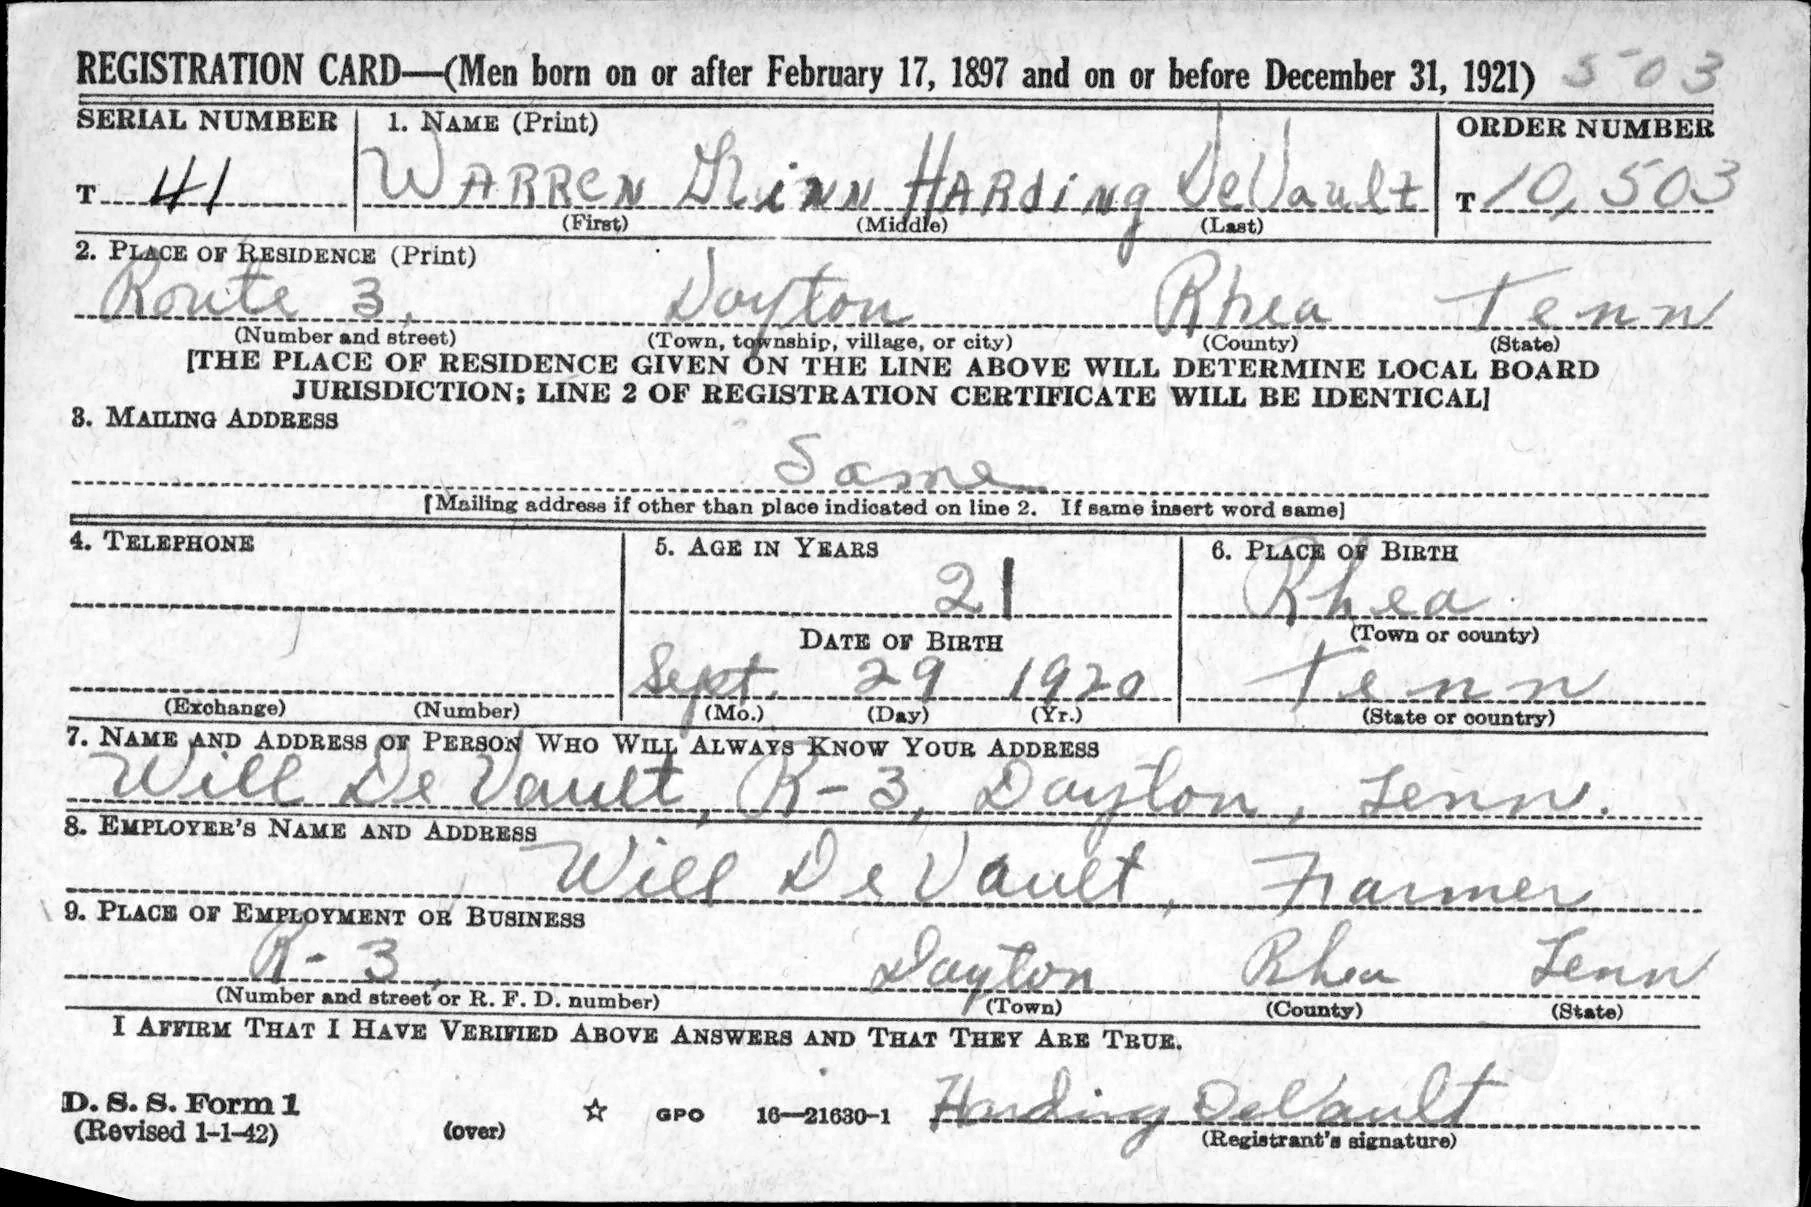 REGISTRATION CARD—(Men born on or after February 17, 1897 and on or before December 31, 1921) 503
SERIAL NUMBER 1. NAME (Print) ORDER NUMBER
T 41 WARREN HARding DeVault T 10,503
(First) (Middle) (Last)
2. PLACE OF RESIDENCE (Print)
Route 3, Dayton Rhea Tenn
(Number and street) (Town, township, village, or city) (County) (State)
[THE PLACE OF RESIDENCE GIVEN ON THE LINE ABOVE WILL DETERMINE LOCAL BOARD
JURISDICTION; LINE 2 OF REGISTRATION CERTIFICATE WILL BE IDENTICAL]
3. MAILING ADDRESS
Same
[Mailing address if other than place indicated on line 2. If same insert word same]
4. TELEPHONE 5. AGE IN YEARS 6. PLACE OF BIRTH
21 Rhea
DATE OF BIRTH (Town or county)
Sept. 29 1920 Tenn
(Exchange) (Number) (Mo.) (Day) (Yr.) (State or country)
7. NAME AND ADDRESS OF PERSON WHO WILL ALWAYS KNOW YOUR ADDRESS
Will DeVault, R-3, Dayton, Tenn.
8. EMPLOYER'S NAME AND ADDRESS
Will DeVault, Farmer
9. PLACE OF EMPLOYMENT OR BUSINESS
R-3, Dayton Rhea Tenn
(Number and street or R. F. D. number) (Town) (County) (State)
I AFFIRM THAT I HAVE VERIFIED ABOVE ANSWERS AND THAT THEY ARE TRUE.
D. S. S. Form 1 Harding DeVault
(Revised 1-1-42) (over) ☆ GPO 16—21630-1 (Registrant's signature)